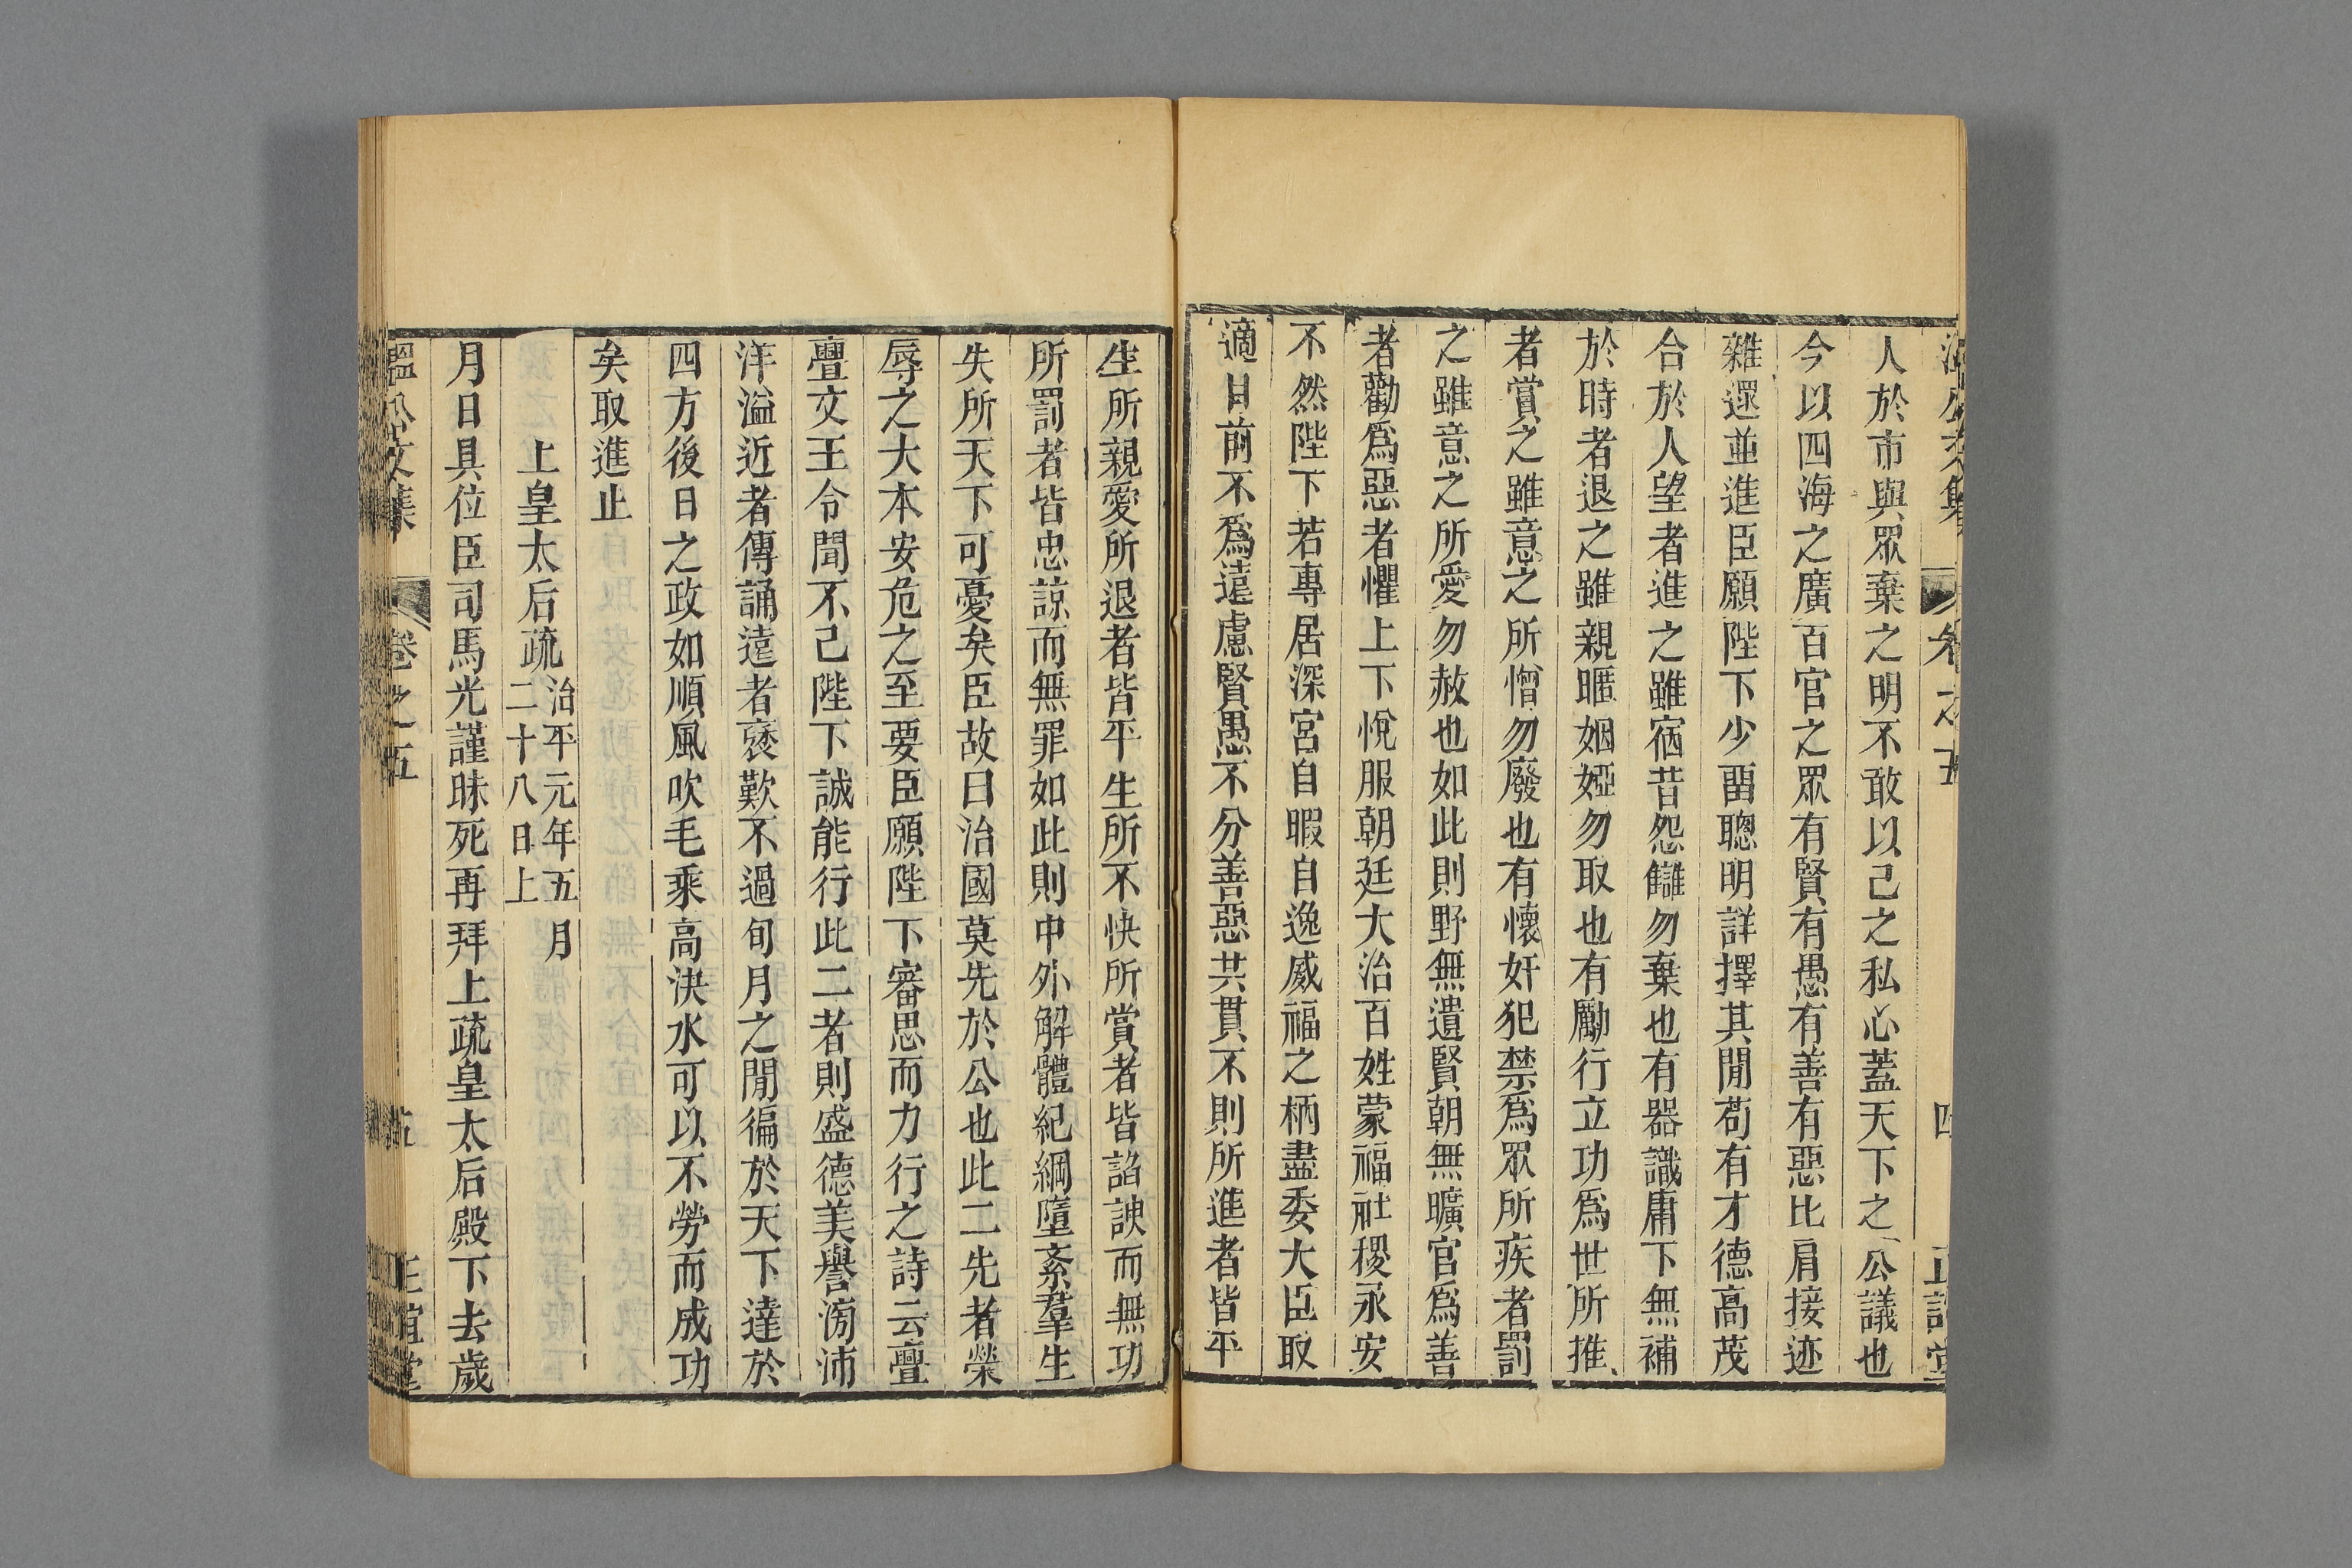 溫公文集 卷之五 四 正誼堂
人於市與眾棄之明不敢以己之私心蓋天下之公議也
今以四海之廣百官之眾有賢有愚有善有惡比肩接迹
雜遝並進臣願陛下少畱聰明詳擇其閒苟有才德高茂
合於人望者進之雖宿昔怨讎勿棄也有器識庸下無補
於時者退之雖親暱姻婭勿取也有勵行立功爲世所推
者賞之雖意之所憎勿廢也有懷奸犯禁爲眾所疾者罰
之雖意之所愛勿赦也如此則野無遺賢朝無曠官爲善
者勸爲惡者懼上下悅服朝廷大治百姓蒙福社稷永安
不然陛下若專居深宮自暇自逸威福之柄盡委大臣取
適目前不爲遠慮賢愚不分善惡共貫不則所進者皆平
生所親愛所退者皆平生所不快所賞者皆諂諛而無功
所罰者皆忠諒而無罪如此則中外解體紀綱墮紊羣生
失所天下可憂矣臣故曰治國莫先於公也此二先者榮
辱之大本安危之至要臣願陛下審思而力行之詩云亹
亹文王令聞不已陛下誠能行此二者則盛德美譽滂沛
洋溢近者傳誦遠者褒歎不過旬月之閒徧於天下達於
四方後日之政如順風吹毛乘高決水可以不勞而成功
矣取進止
上皇太后疏 治平元年五月
二十八日上
月日具位臣司馬光謹昧死再拜上疏皇太后殿下去歲
溫公文集 卷之五 五 正誼堂